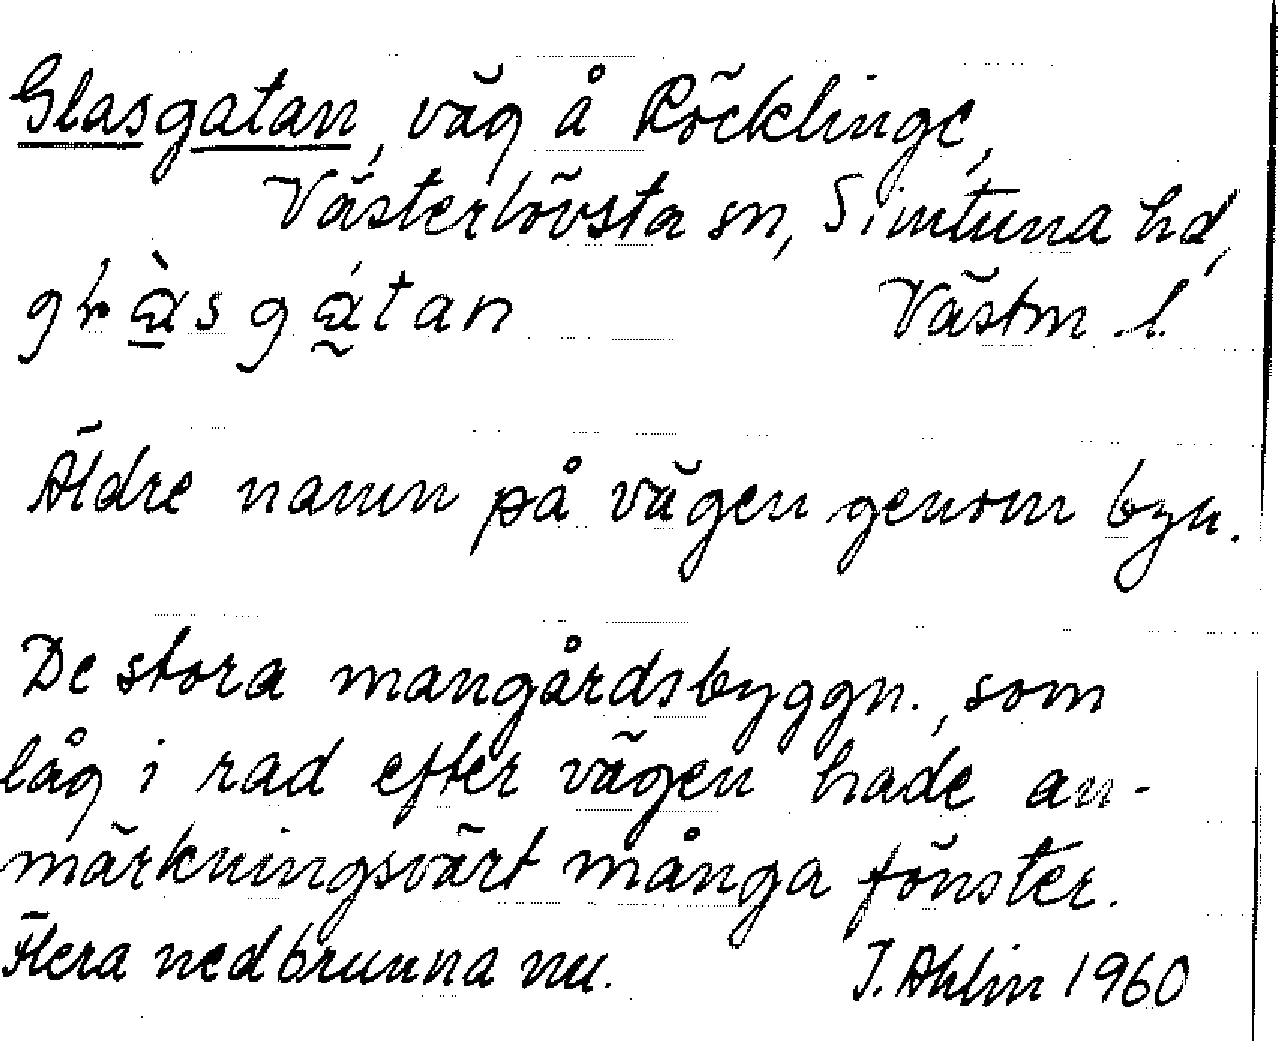 Glasgatan, väg å Röcklinge,
Västerlövsta sn, Simtuna hd,
Västm. l.
Äldre namn på vägen genom byn.
De stora mangårdsbyggn., som
låg i rad efter vägen hade an-
märkningsvärt många fönster.
Flera nedbrunna nu. I. Ahlin 1960